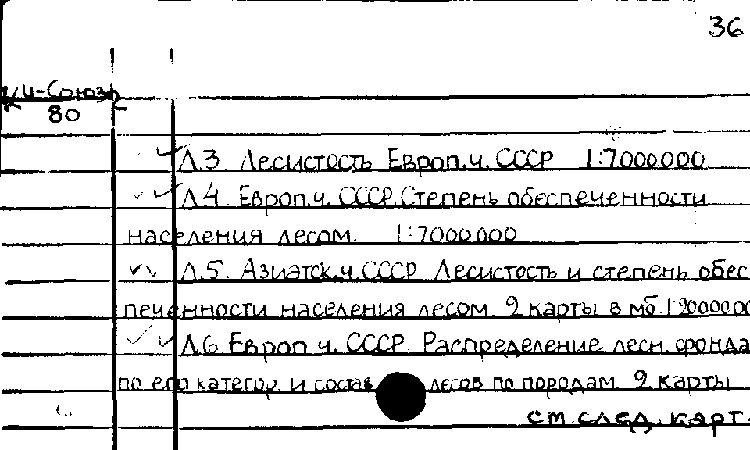 36
и-Союз
80
Л.3. Лесистость Европ.ч. СССР 1:7000000
Л.4. Европ.ч. СССР. Степень обеспеченности
населения лесом. 1:7000000
Л.5. Азиатск.ч. СССР. Лесистость и степень обес
печенности населения лесом. 2 карты в мб
Л.6. Европ.ч. СССР. Распределение лесн. фонда
по его категор. и состав лесов по породам. 2 карты
см. след. карт.